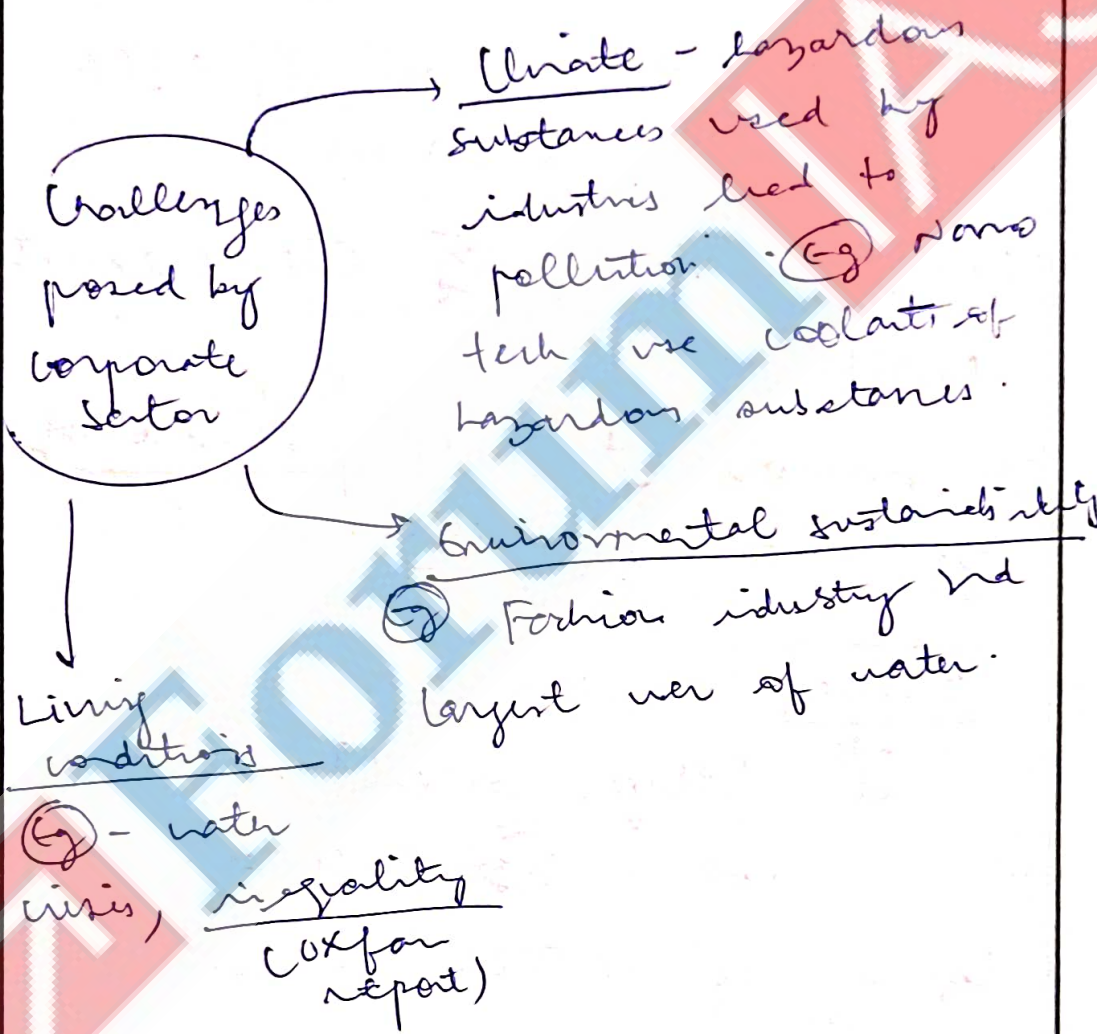 Challenges
posed by
corporate
sector
Climate - hazardous
substances used by
industries lead to
pollution. Eg Nano
tech use coolants of
hazardous substances.
Environmental sustainability
Eg Fashion industry 2nd
largest user of water.
Living
conditions
Eg - water
crisis, inequality
(oxfam
report)
Forum IA